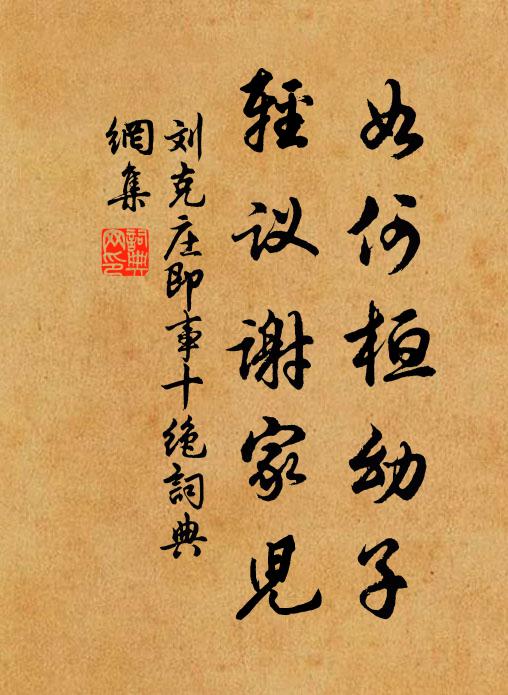 如何桓幼子
輕议谢家児
刘克庄即事十绝詞典
網集
詞典網印